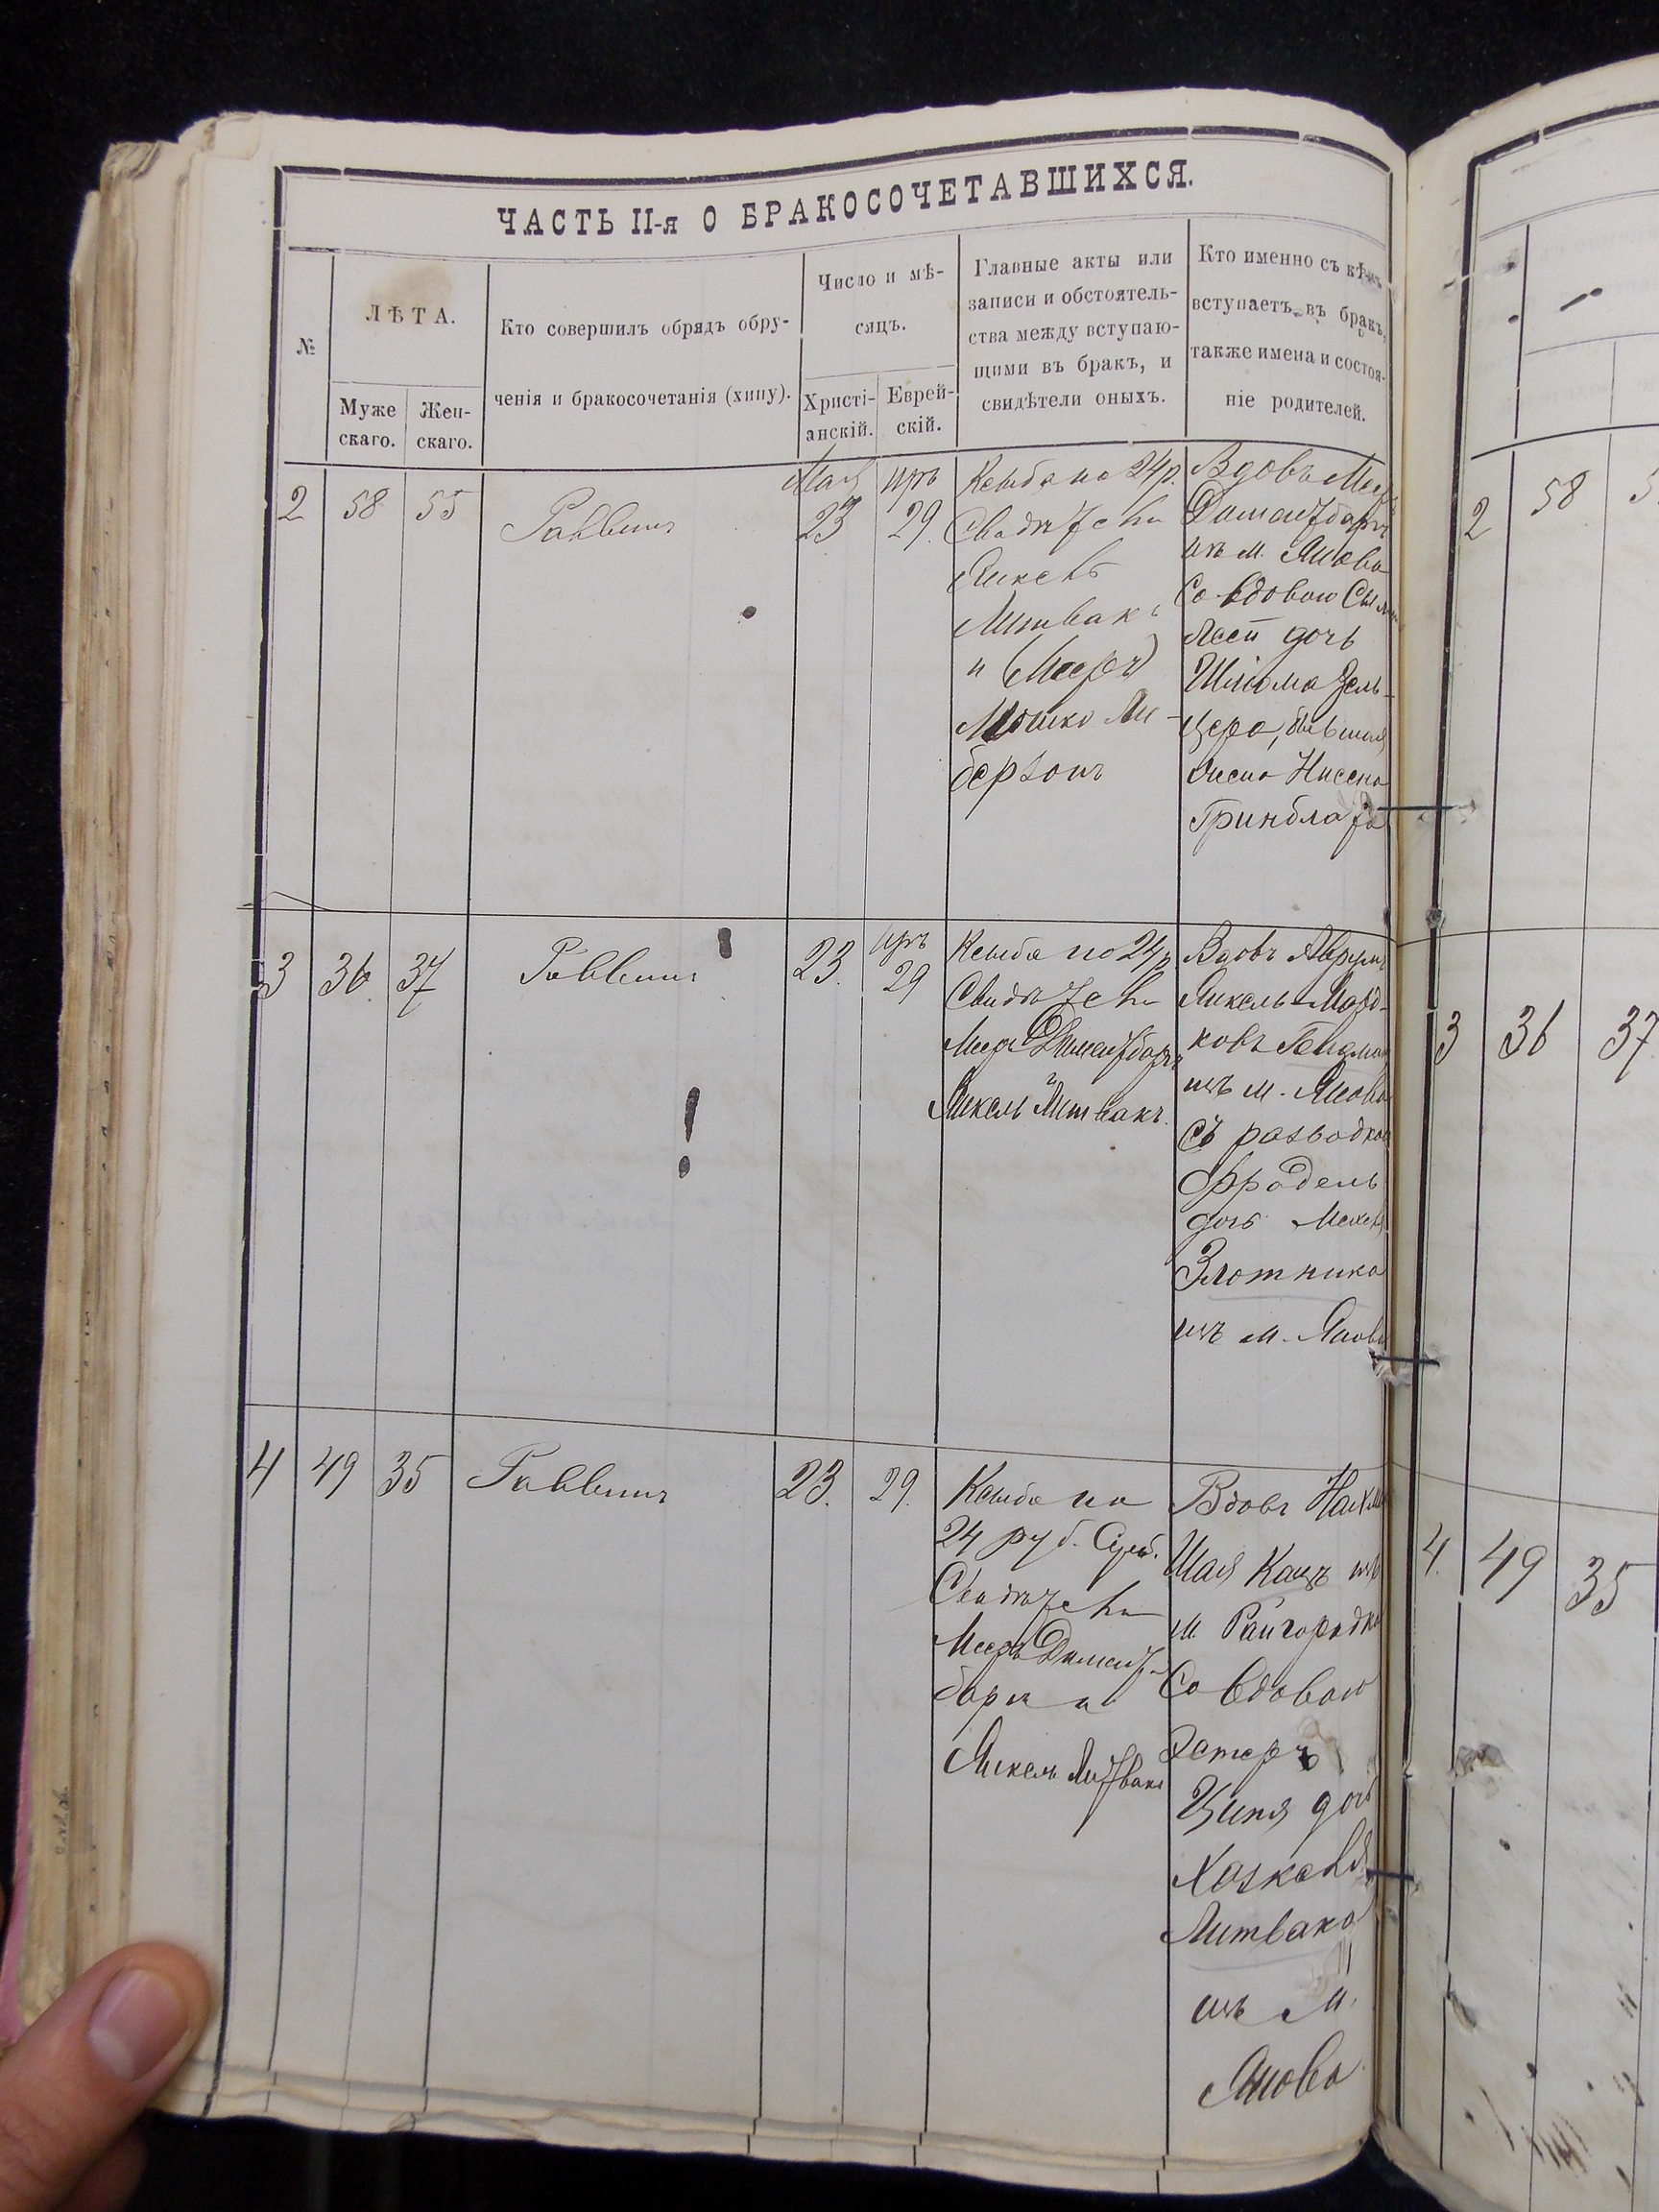 ЧАСТЬ II-я О БРАКОСОЧЕТАВШИХСЯ.
№
ЛѢТА.
Муже
скаго.
Жен-
скаго.
Кто совершилъ обрядъ обру-
ченія и бракосочетанія (хипу).
Число и мѣ-
сяцъ.
Христі-
анскій.
Еврей-
скій.
Главные акты или
записи и обстоятель-
ства между вступаю-
щими въ бракъ, и
свидѣтели оныхъ.
Кто именно съ кѣмъ
вступаетъ въ бракъ,
также имена и состоя-
ніе родителей.
2
58
55
Раввинъ
Мая
23
иръ
29.
Ксыба на 24 р.
Свидѣтели
Янкель
Литвакъ
и Мееръ
Мошко Ли-
берзонъ
Вдовъ
изъ м. Янова
Со вдовою
Лея дочь
Шліома Зель-
цера, бывшая
жена Нисена
Гринблата
3
36
37
Раввинъ
23.
иръ
29
Ксыба на 24 р
Свидѣтели
Янкель Литвакъ.
Вдовъ Аврумъ
Янкель Морд-
ковъ
изъ м. Янова
съ разводкою
Фрадель
дочь
Злотника
изъ м. Янова
4
49
35
Раввинъ
23.
29.
Ксыба на
24 руб. Сереб.
Свидѣтели
Мееръ
баргъ и
Янкель Литвакъ
Вдовъ
Шая Кацъ изъ
м Райгородка
Со вдовою
Эстеръ
Ципя дочь
Хаскеля
Литвака
изъ м.
Янова
2
58
3
36
37
4.
49
35